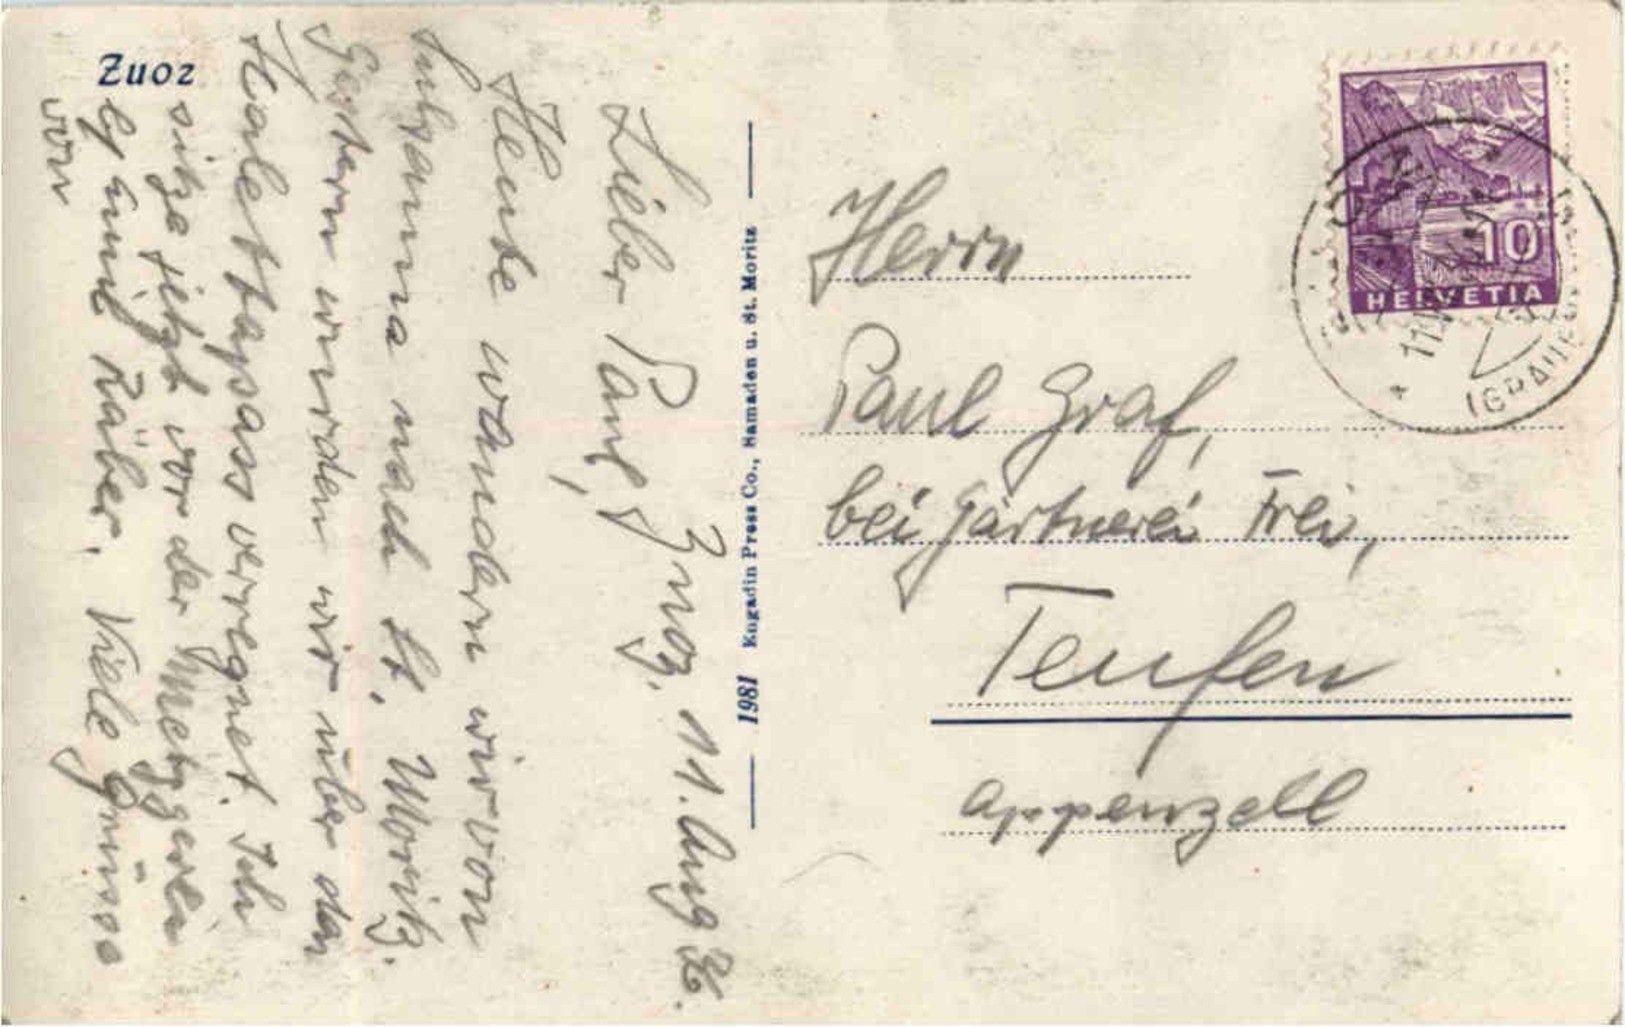 Zuoz
Zuoz, 11. Aug 36.
Lieber Paul,
Heute wandern wir von
nach St. Moritz.
Gestern wurden wir über den
Scalettapass verregnet. Ich
sitze jetzt vor der Metzgerei
Emil Räber. Viele Grüsse
von
1981 Engadin Press Co., Samaden u. St. Moritz
HELVETIA
10
Herrn
Paul Graf,
bei Gärtnerei Frei,
Teufen
Appenzell